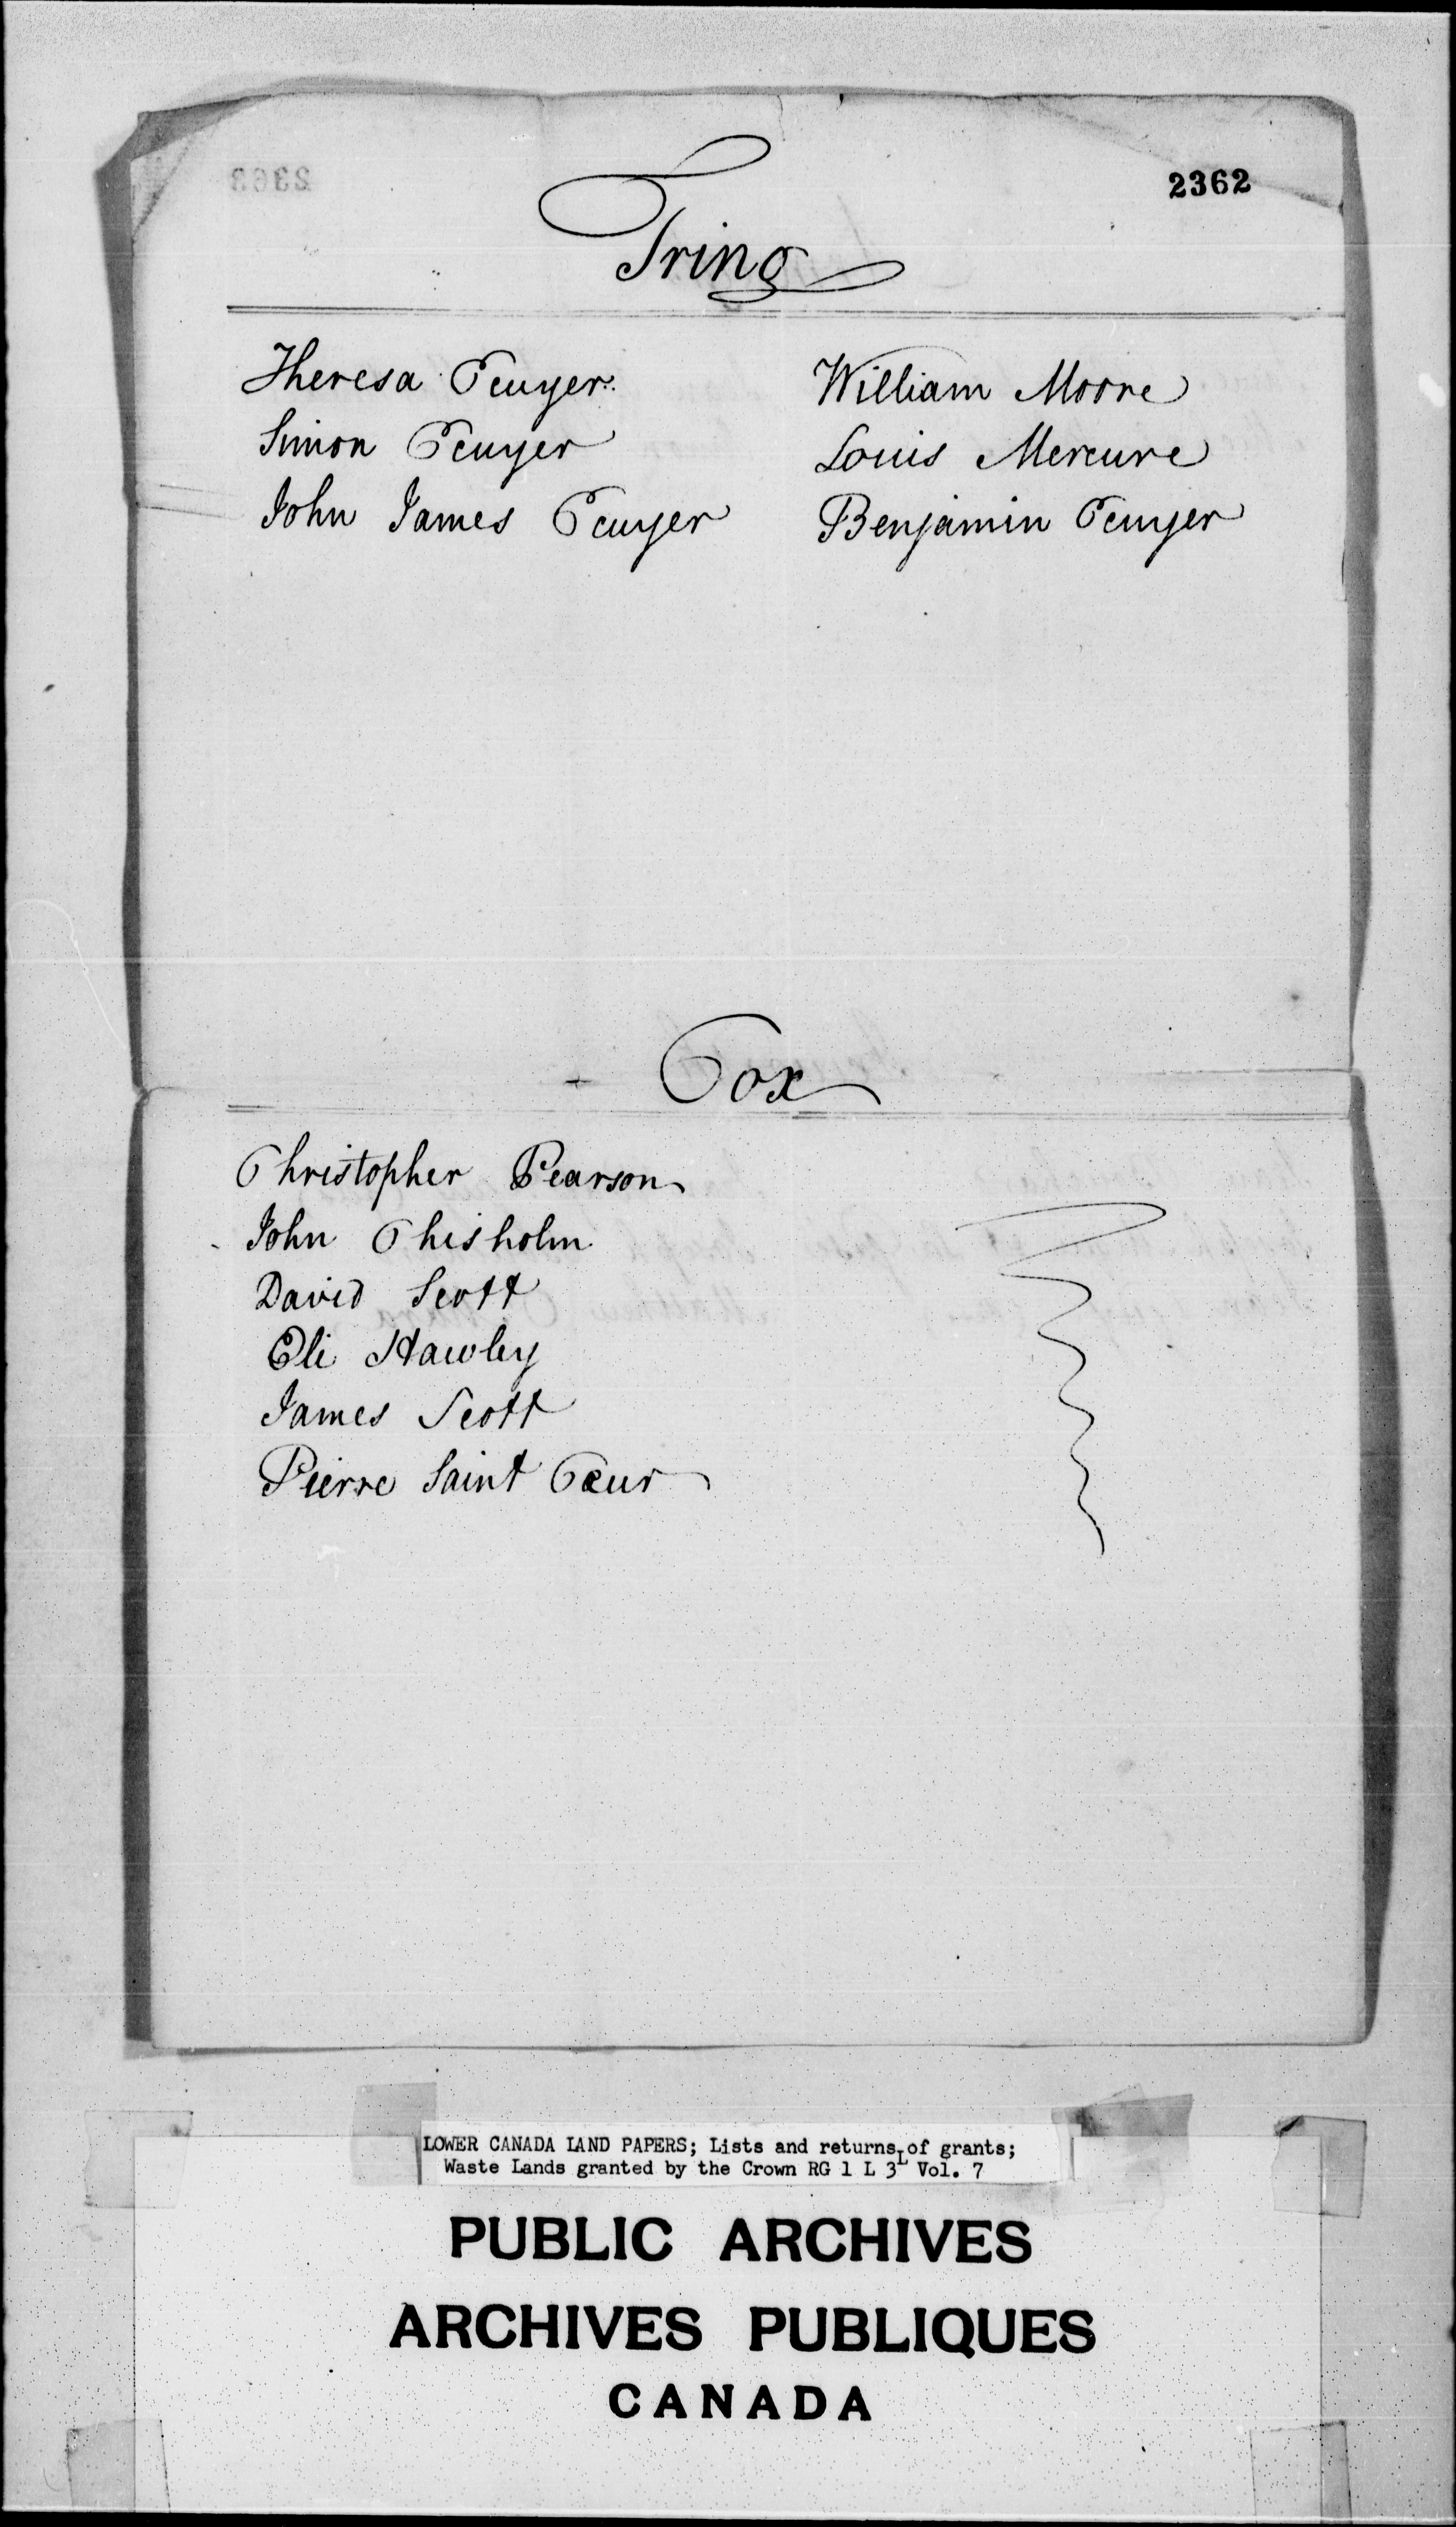 2362
Tring
Theresa Ecuyer
William Moore
Simon Ecuyer
Louis Mercure
John James Ecuyer
Benjamin Ecuyer
Cox
Christopher Pearson
John Chisholm
David Scott
Eli Hawley
James Scott
Pierre Saint Cœur
LOWER CANADA LAND PAPERS; Lists and returns of grants;
Waste Lands granted by the Crown RG 1 L 3L Vol. 7
PUBLIC ARCHIVES
ARCHIVES PUBLIQUES
CANADA